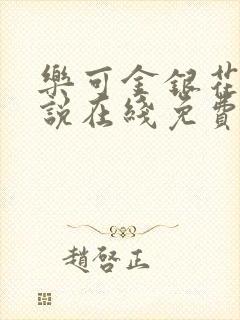 樂可金銀花
說在綫免費
趙啓正